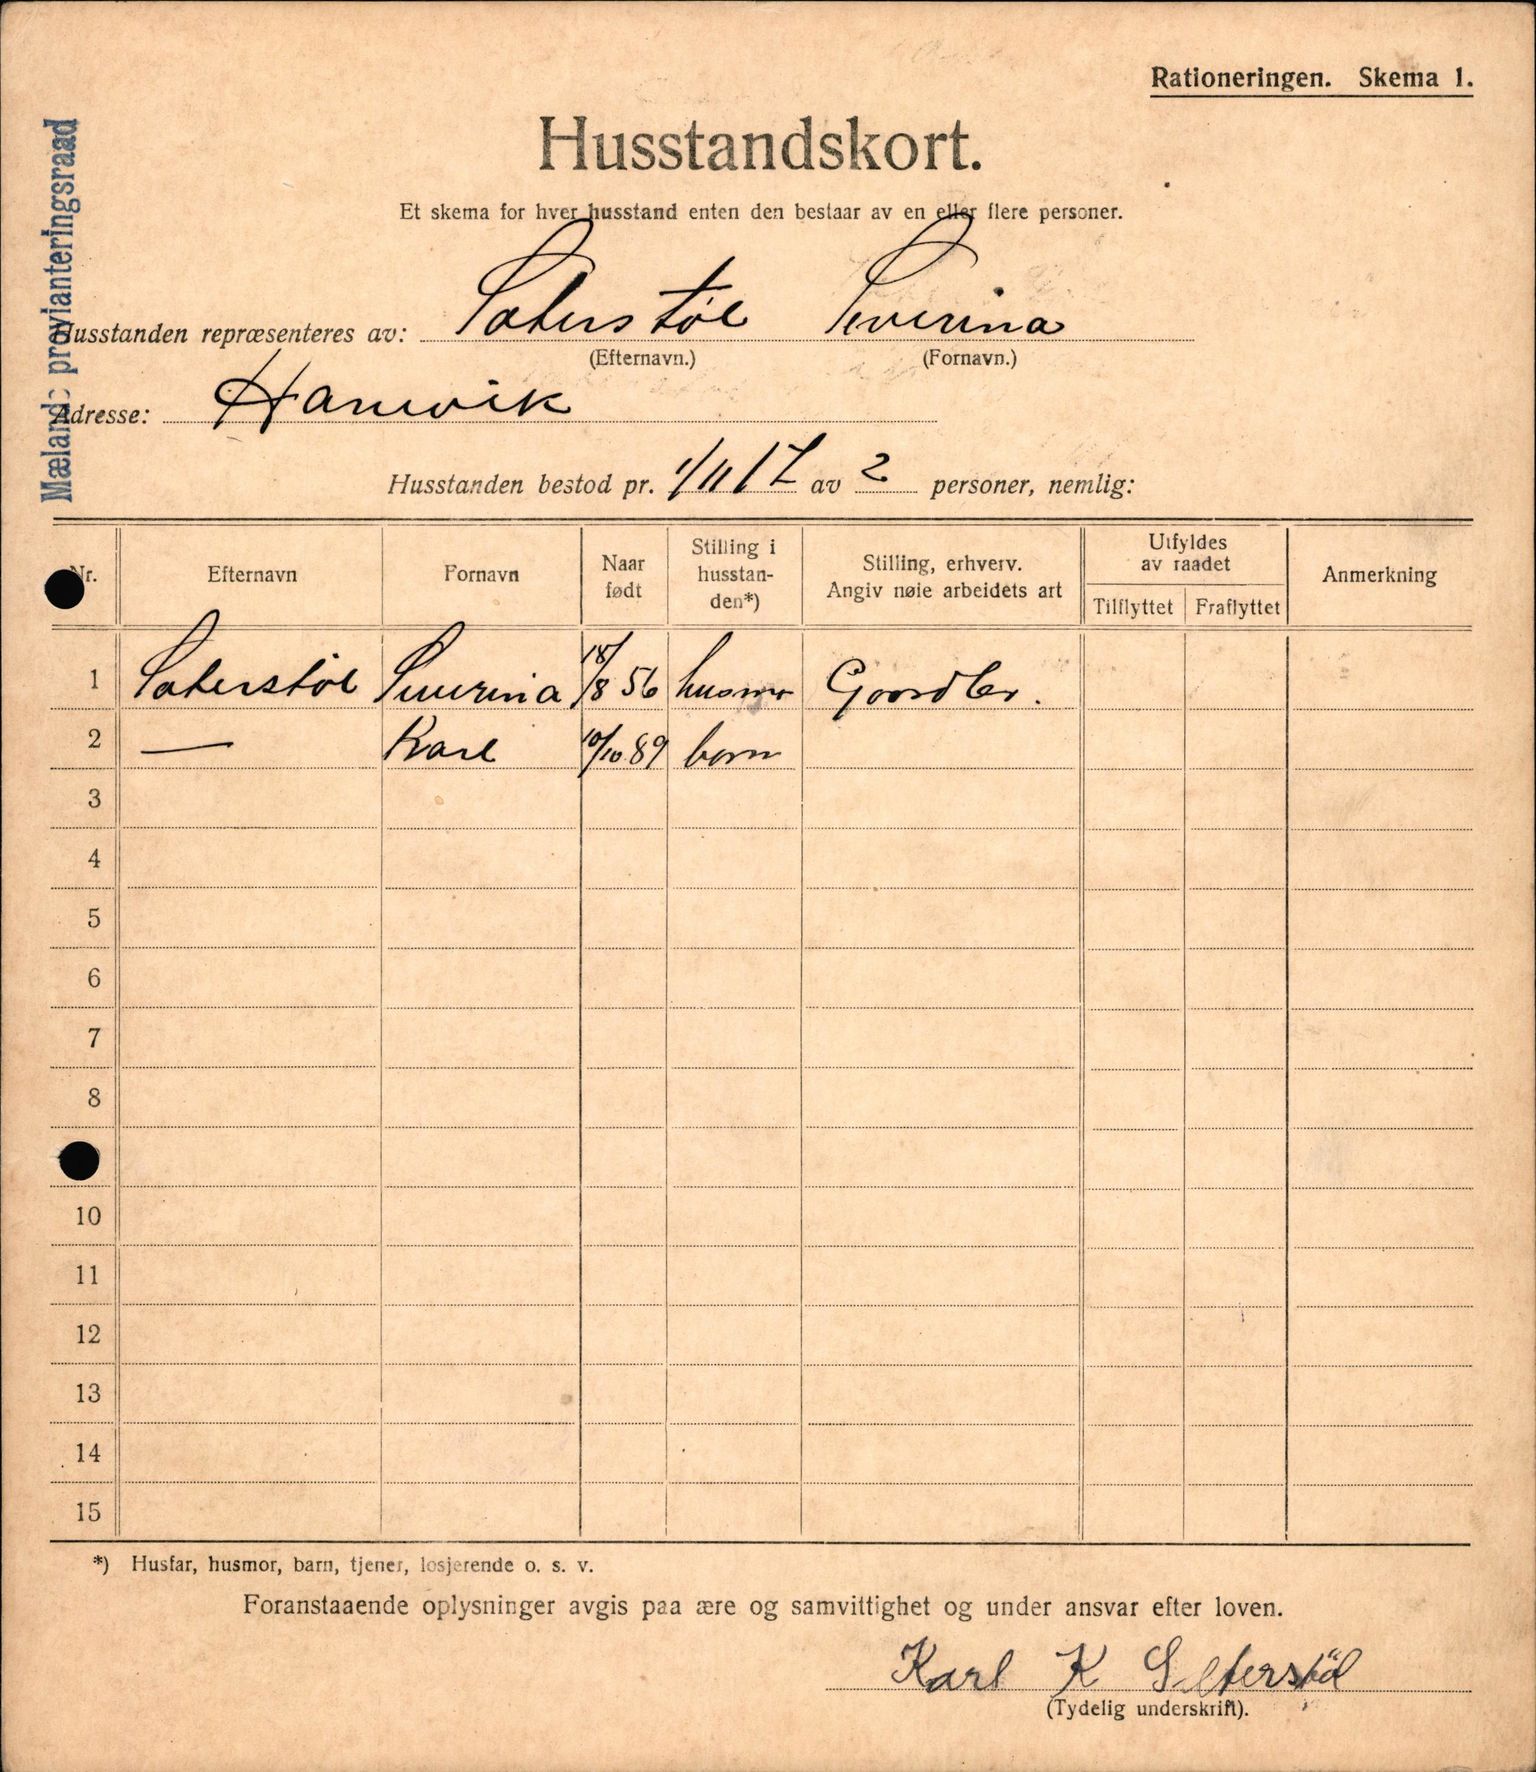 Rationeringen. Skema 1.
Husstandskort.
Et skema for hver husstand enten den bestaar av en eller flere personer.
Mælands provianteringsraad
Husstanden repræsenteres av: Sæterstøl Severina
(Efternavn.) (Fornavn.)
Adresse: Hamvik
Husstanden bestod pr. 1/11 17 av 2 personer, nemlig:
Nr. Efternavn Fornavn Naar født Stilling i husstan-den*) Stilling, erhverv. Angiv nøie arbeidets art Utfyldes av raadet Tilflyttet Fraflyttet Anmerkning
1 Sæterstøl Severina 18/8 56 husmor
2 — Karl 10/10 89 barn
3
4
5
6
7
8
10
11
12
13
14
15
*) Husfar, husmor, barn, tjener, losjerende o. s. v.
Foranstaaende oplysninger avgis paa ære og samvittighet og under ansvar efter loven.
Karl K Sæterstöl
(Tydelig underskrift).